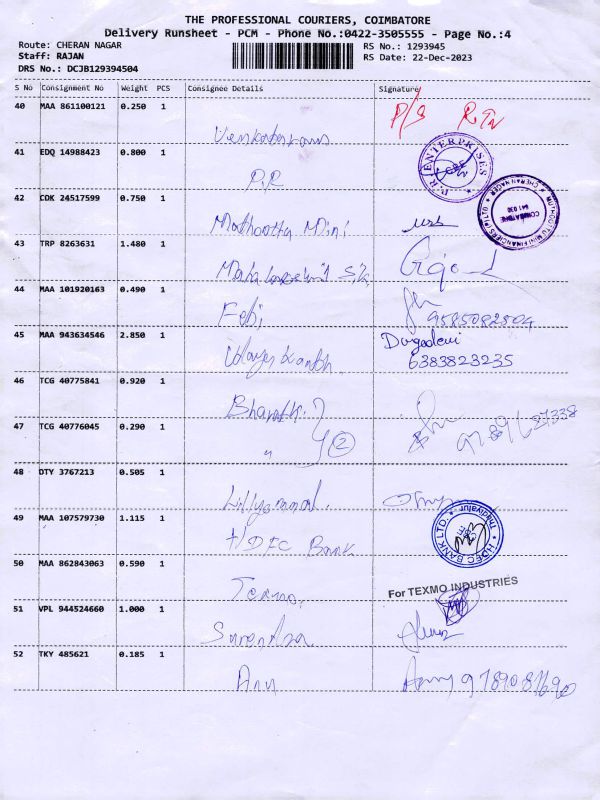 THE PROFESSIONAL COURIERS, COIMBATORE
Delivery Runsheet - PCM - Phone No.:0422-3505555 - Page No.:4
Route: CHERAN NAGAR
RS No.: 1293945
Staff: RAJAN
RS Date: 22-Dec-2023
DRS No.: DCJB129394504
S No Consignment No Weight PCS Consignee Details Signature
40 MAA 861100121 0.250 1
P/S RTN
41 EDQ 14988423 0.800 1
R.R
R.R ENTERPRISES
42 COK 24517599 0.750 1
Muthootta Mini
MUTHOOTTU MINI FINANCIERS (P) LTD
CHERAN NAGAR
COIMBATORE
641 030
43 TRP 8263631 1.480 1
44 MAA 101920163 0.490 1
Febi
9585082504
45 MAA 943634546 2.850 1
Udaya Kanth
Durgadevi
6383823235
46 TCG 40775841 0.920 1
Bharath
47 TCG 40776045 0.290 1
" 2
9789627338
48 DTY 3767213 0.505 1
Lillyammal
49 MAA 107579730 1.115 1
HDFC Bank
HDFC BANK LTD
Thudiyalur
50 MAA 862843063 0.590 1
Texmo
For TEXMO INDUSTRIES
51 VPL 944524660 1.000 1
Surendra
52 TKY 485621 0.185 1
Anu